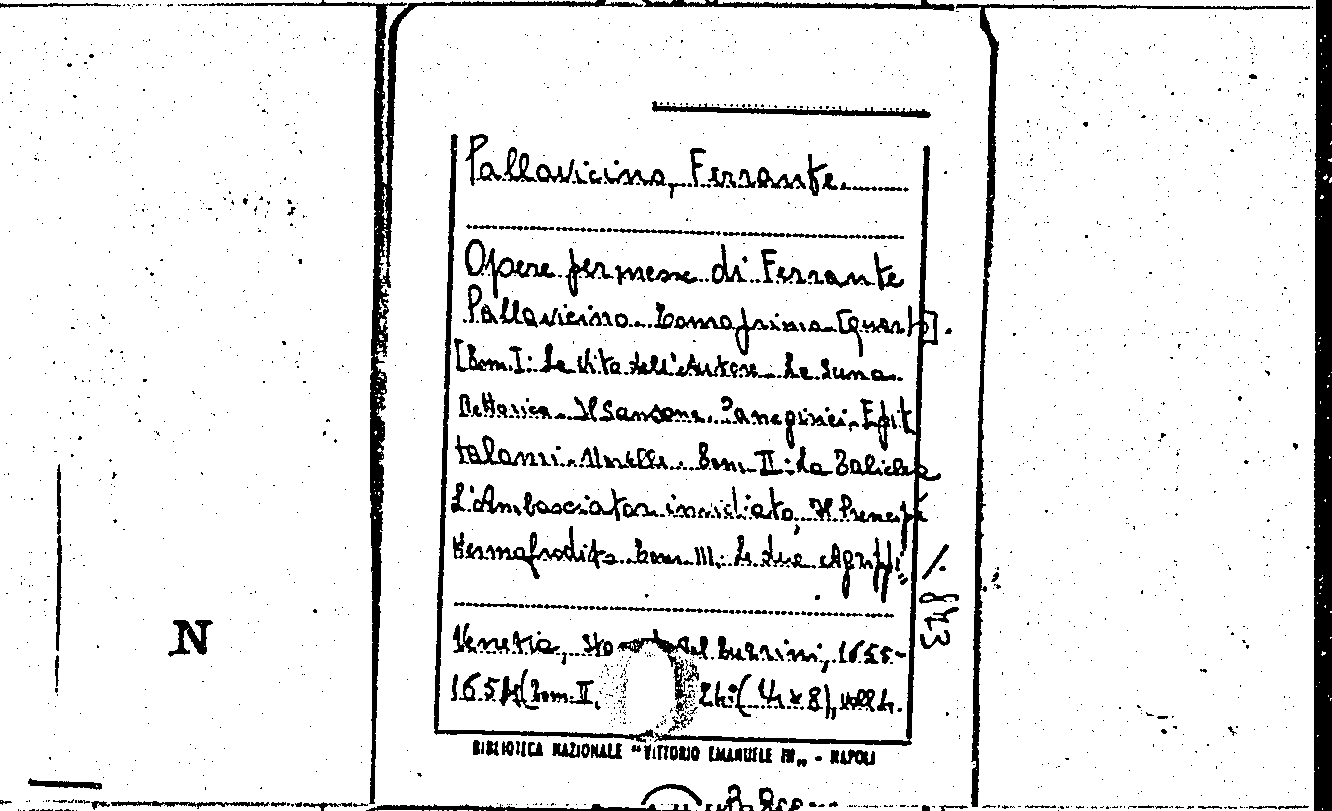 Pallavicino, Ferrante.
Opere permesse di Ferrante
Pallavicino. Tomo primo [quarto].
[Tom. I: La Vita dell'Autore. La Suna.
Rettorica. Il Sansone. Panegirici. Epit
talami. Novelle. Tom. II: La Taliclea
L'Ambasciator invidiato, Il Principe
Hermafrodito. Tom. III: Le due Agrippi"
./. 843
Venetia, del Turrini, 1655-
165 (Tom. II, (4 x 8), voll. 4.
BIBLIOTECA NAZIONALE "VITTORIO EMANUELE III„ - NAPOLI
N